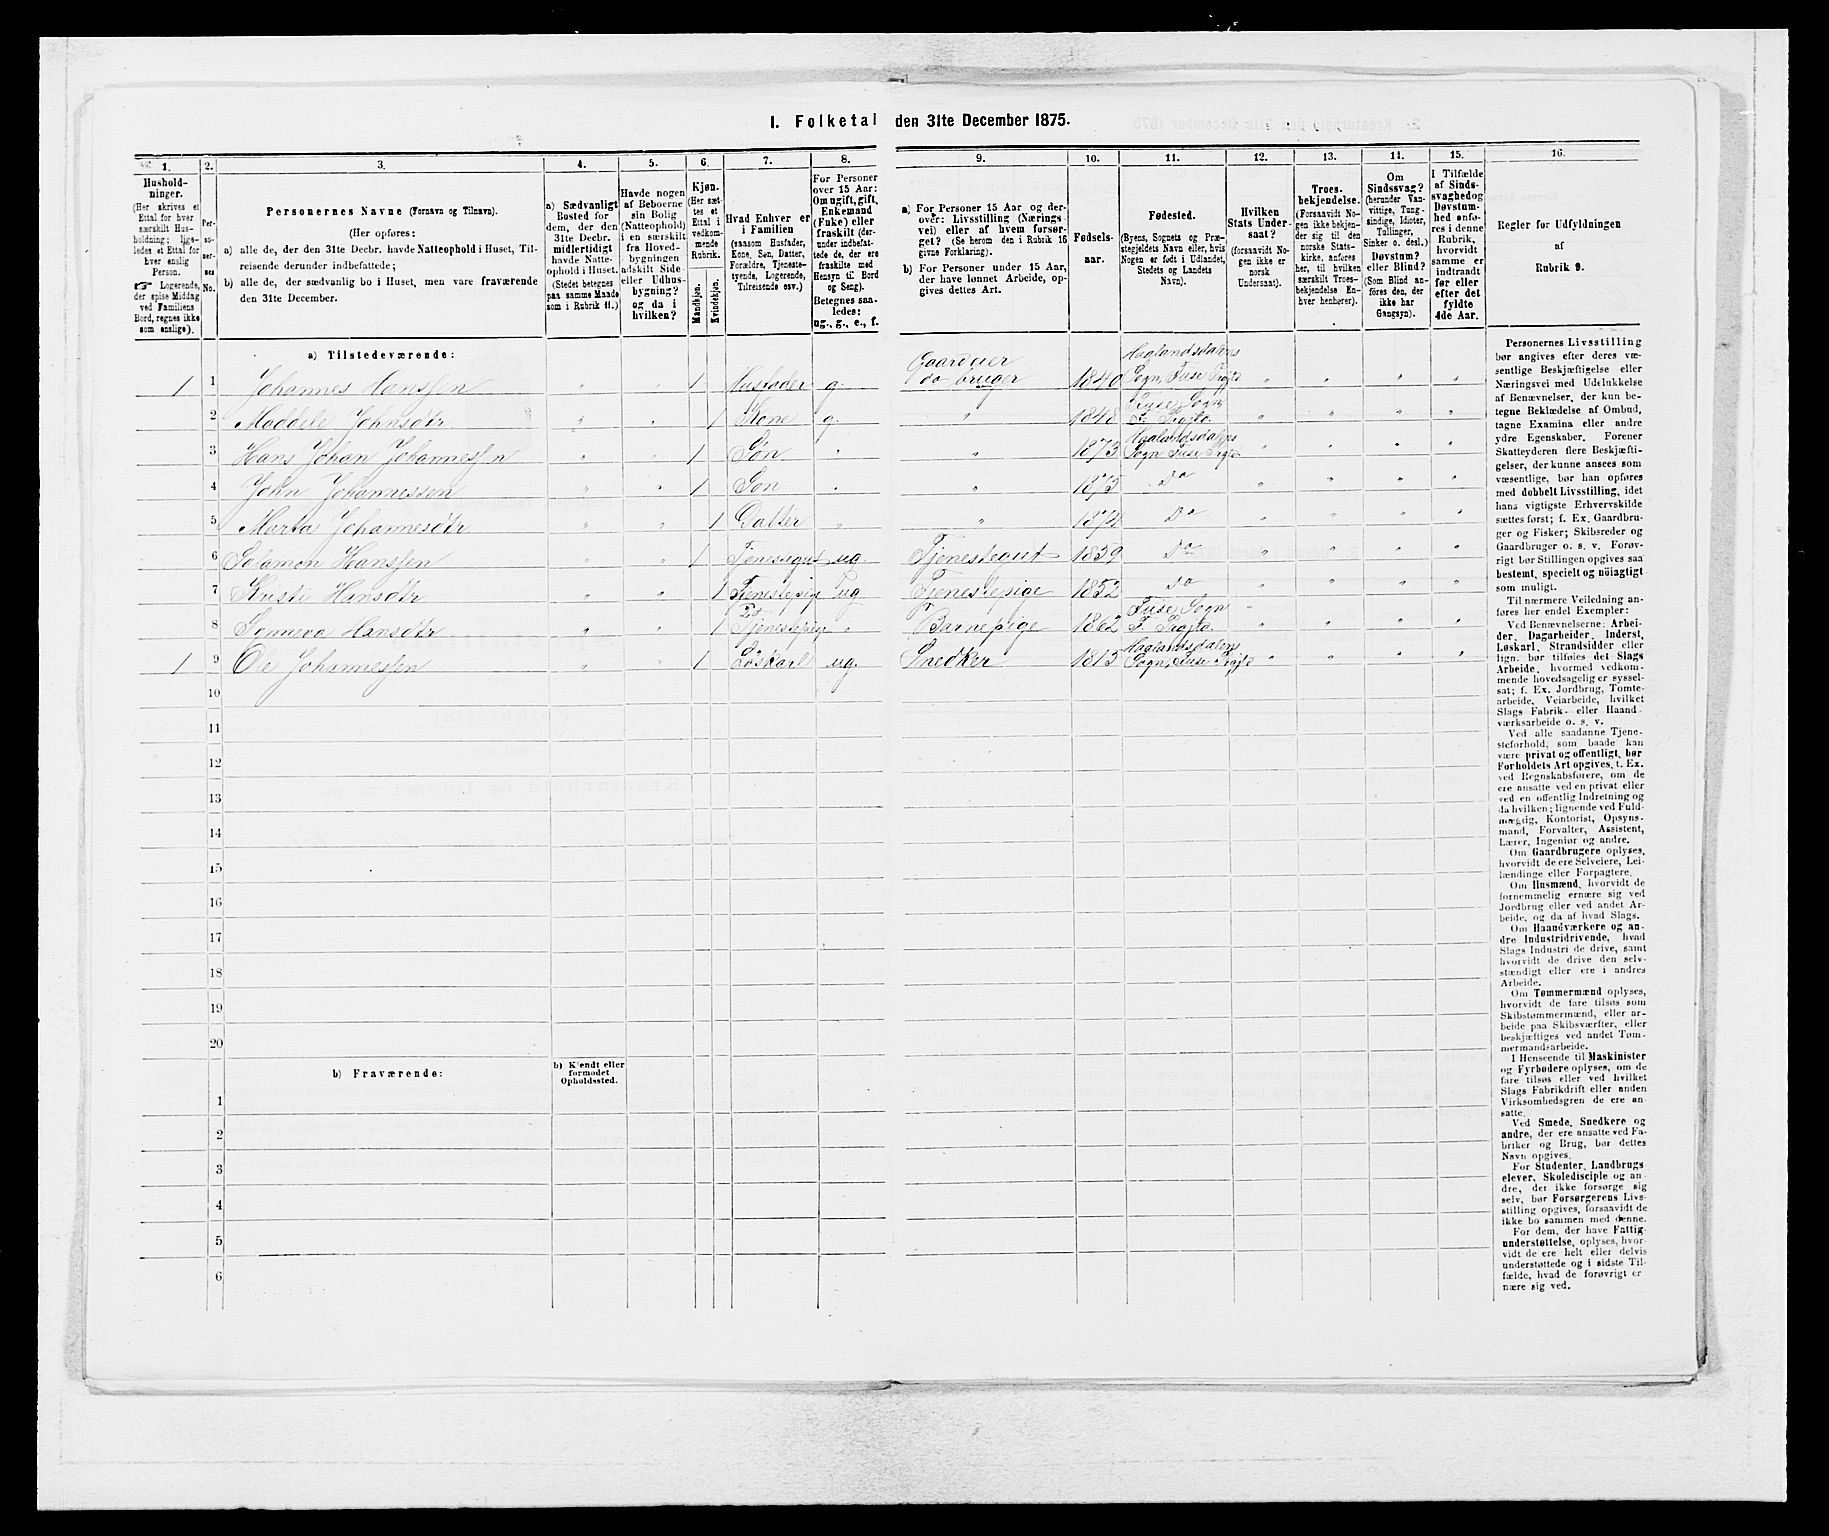 I. Folketal den 31te December 1875.
1. 2. 3. 4. 5. 6. 7. 8. 9. 10. 11. 12. 13. 14. 15. 16.
Husholdninger.
(Her skrives et
Ettal for hver
særskilt Husholdning;
ligeledes et Ettal for
hver enslig
Person.
☞ Logerende,
der spise Middag
ved Familiens
Bord, regnes ikke
som enslige).
Personernes No.
Personernes Navne (Fornavn og Tilnavn).
(Her opføres:
a) alle de, der den 31te Decbr. havde Natteophold i Huset, Tilreisende derunder indbefattede;
b) alle de, der sædvanlig bo i Huset, men vare fraværende
den 31te December.
a) Sædvanligt
Bosted for
dem, der den
31te Decbr.
midlertidigt
havde Natteophold i Huset.
(Stedet betegnes
paa samme Maade
som i Rubrik 11.)
Havde nogen
af Beboerne
sin Bolig
(Natteophold)
i en særskilt
fra Hovedbygningen
adskilt Side-
eller Udhusbygning?
og da i
hvilken?
Kjøn.
(Her sættes et
Ettal i
vedkommende
Rubrik.
Mandkjøn.
Kvindekjøn.
Hvad Enhver er
i Familien
(saasom Husfader,
Kone, Søn, Datter,
Forældre, Tjenestetyende, Logerende,
Tilreisende osv.)
For Personer
over 15 Aar:
Om ugift, gift,
Enkemand
(Enke) eller
fraskilt (derunder indbefattede de, der ere
fraskilte med
Hensyn til Bord
og Seng).
Betegnes saaledes:
ug., g., e., f.
a) For Personer 15 Aar og derover: Livsstilling (Næringsvei) eller af hvem forsørget? (Se herom den i Rubrik 16
givne Forklaring).
b) For Personer under 15 Aar,
der have lønnet Arbeide, opgives dettes Art.
Fødselsaar.
Fødested.
(Byens, Sognets og Præstegjeldets Navn eller, hvis
Nogen er født i Udlandet,
Stedets og Landets
Navn).
Hvilken
Stats Undersaat?
(forsaavidt Nogen ikke er
norsk
Undersaat).
Troesbekjendelse.
(Forsaavidt Nogen ikke bekjender sig til den
norske Statskirke, anføres
her, til hvilken
særskilt Troesbekjendelse Enhver henhører).
Om
Sindssvag?
(herunder Vanvittige, Tungsindige, Idioter,
Tullinger,
Sinker o. desl.)
Døvstum?
eller Blind?
(Som Blind anføres den, der
ikke har
Gangsyn).
I Tilfælde
af Sindssvaghed og
Døvstumhed anføres i denne
Rubrik,
hvorvidt
samme er
indtraadt
før eller
efter det
fyldte
4de Aar.
Regler for Udfyldningen
af
Rubrik 9.
a) Tilstedeværende:
1 1 Johannes Hanssen " " 1 Husfader g. Gaardeier do bruger 1840 Haalandsdalens Sogn, Fuse Prgjld " " " "
2 Maddele Johnsdtr " " 1 Kone g. " 1848 Fuse Sogn F. Prgjld " " " "
3 Hans Johan Johannessen " " 1 Søn " " 1873 Haalandsdalens Sogn Fuse Prgjld " " " "
4 John Johannessen " " 1 Søn " " 1875 Do " " " "
5 Marta Johannesdtr " " 1 Datter " " 1874 Do " " " "
6 Salamon Hanssen " " 1 Tjenestegut ug Tjenestegut 1859 Do " " " "
7 Kristi Hansdtr " " 1 Tjenestepige ug Tjenestepige 1852 Do " " " "
8 Sønneva Hansdtr " " 1 Tjenestepige " Barnepige 1862 Fuse Sogn F. Prgjld " " " "
1 9 Ole Johannessen " " 1 Løskarl ug. Snedker 1813 Haalandsdalens Sogn, Fuse Prgjld " " " "
10
11
12
13
14
15
16
17
18
19
20
b) Fraværende:
b) Kjendt eller
formodet
Opholdssted.
1
2
3
4
5
6
Personernes Livsstilling
bør angives efter deres væsentlige Beskjæftigelse eller
Næringsvei med Udelukkelse
af Benævnelser, der kun betegne Beklædelse af Ombud,
tagne Examina eller andre
ydre Egenskaber. Forener
Skatteyderen flere Beskjæftigelser, der kunne ansees som
væsentlige, bør han opføres
med dobbelt Livsstilling, idet
hans vigtigste Erhvervskilde
sættes først; f. Ex. Gaardbruger og Fisker; Skibsreder og
Gaardbruger o. s. v. Forøvrigt bør Stillingen opgives saa
bestemt, specielt og nøiagtigt
som muligt.
Til nærmere Veiledning anføres her endel Exempler:
Ved Benævnelserne: Arbeider, Dagarbeider, Inderst,
Løskarl, Strandsidder eller
lign. bør tilføies det Slags
Arbeide, hvormed vedkommende hovedsagelig er sysselsat; f. Ex. Jordbrug, Tomtearbeide, Veiarbeide, hvilket
Slags Fabrik- eller Haandværksarbeide o. s. v.
Ved alle saadanne Tjenesteforhold, som baade kan
være privat og offentligt, bør
Forholdets Art opgives, t. Ex.
ved Regnskabsførere, om de
ere ansatte ved en privat eller
ved en offentlig Indretning og
da hvilken; lignende ved Fuldmægtig, Kontorist, Opsynsmand, Forvalter, Assistent,
Lærer, Ingeniør og andre.
Om Gaardbrugere oplyses,
hvorvidt de ere Selveiere, Leilændinge eller Forpagtere.
Om Husmænd, hvorvidt de
fornemmelig ernære sig ved
Jordbrug eller ved andet Arbeide, og da af hvad Slags.
Om Haandværkere og andre Industridrivende, hvad
Slags Industri de drive, samt
hvorvidt de drive den selvstændigt eller ere i andres
Arbeide.
Om Tømmermænd oplyses,
hvorvidt de fare tilsøs som
Skibstømmermænd, eller arbeide paa Skibsværfter, eller
beskjæftiges ved andet Tømmermandsarbeide.
I Henseende til Maskinister
og Fyrbødere oplyses, om de
fare tilsøs eller ved hvilket
Slags Fabrikdrift eller anden
Virksomhedsgren de ere ansatte.
Ved Smede, Snedkere og
andre, der ere ansatte ved Fabriker og Brug, bør dettes
Navn opgives.
For Studenter, Landbrugselever, Skoledisciple og andre, der ikke forsørge sig
selv, bør Forsørgerens Livsstilling opgives, forsaavidt de
ikke bo sammen med denne.
For dem, der have Fattigunderstøttelse, oplyses, hvorvidt de ere helt eller delvis
understøttede og i sidste Tilfælde, hvad de forøvrigt ernære sig ved.